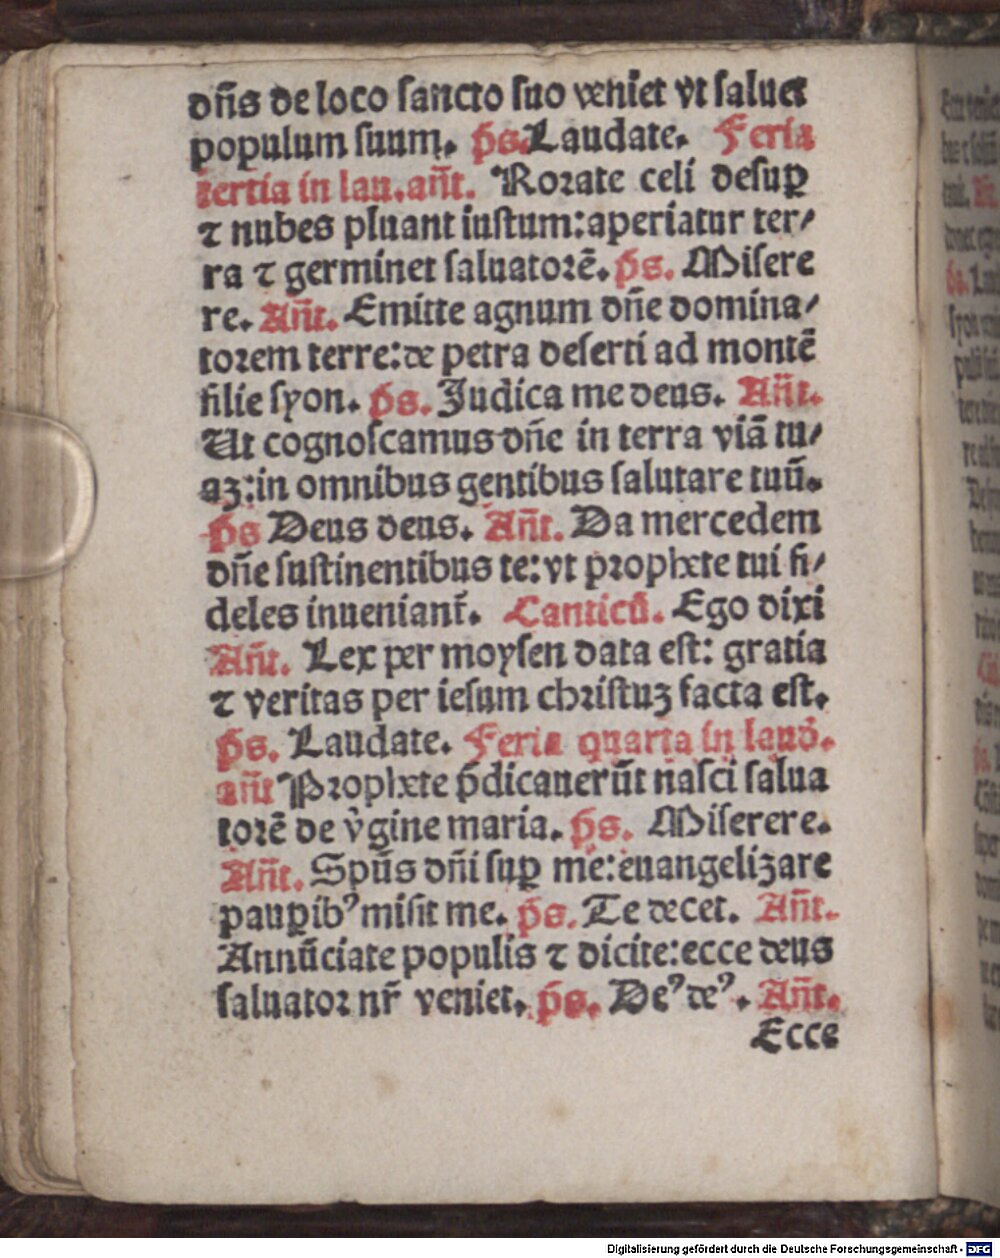 dñs de loco sancto suo veniet vt saluet
populum suum. p̄s. Laudate. Feria
tertia in lau. añt. Rorate celi desuꝑ
⁊ nubes pluant iustum: aperiatur ter⸗
ra ⁊ germinet saluatorē. p̄s. Misere
re. Añt. Emitte agnum dñe domina⸗
torem terre: de petra deserti ad montē
filie syon. p̄s. Judica me deus. Añt.
Ut cognoscamus dñe in terra viā tu⸗
aꝫ: in omnibus gentibus salutare tuū.
p̄s Deus deus. Añt. Da mercedem
dñe sustinentibus te: vt prophete tui fi⸗
deles inueniant̄. Canticū. Ego dixi
Añt. Lex per moysen data est: gratia
⁊ veritas per iesum christuꝫ facta est.
p̄s. Laudate. Feria quarta in laud̄.
añt Prophete p̄dicauerūt nasci salua
torē de v̓gine maria. p̄s. Miserere.
Añt. Spūs dñi suꝑ me: euangelizare
pauꝑibꝰ misit me. p̄s. Te decet. Añt.
Annūciate populis ⁊ dicite: ecce deus
saluator nr̄ veniet. p̄s. Deꝰ deꝰ. Añt.
Ecce
Digitalisierung gefördert durch die Deutsche Forschungsgemeinschaft - DFG